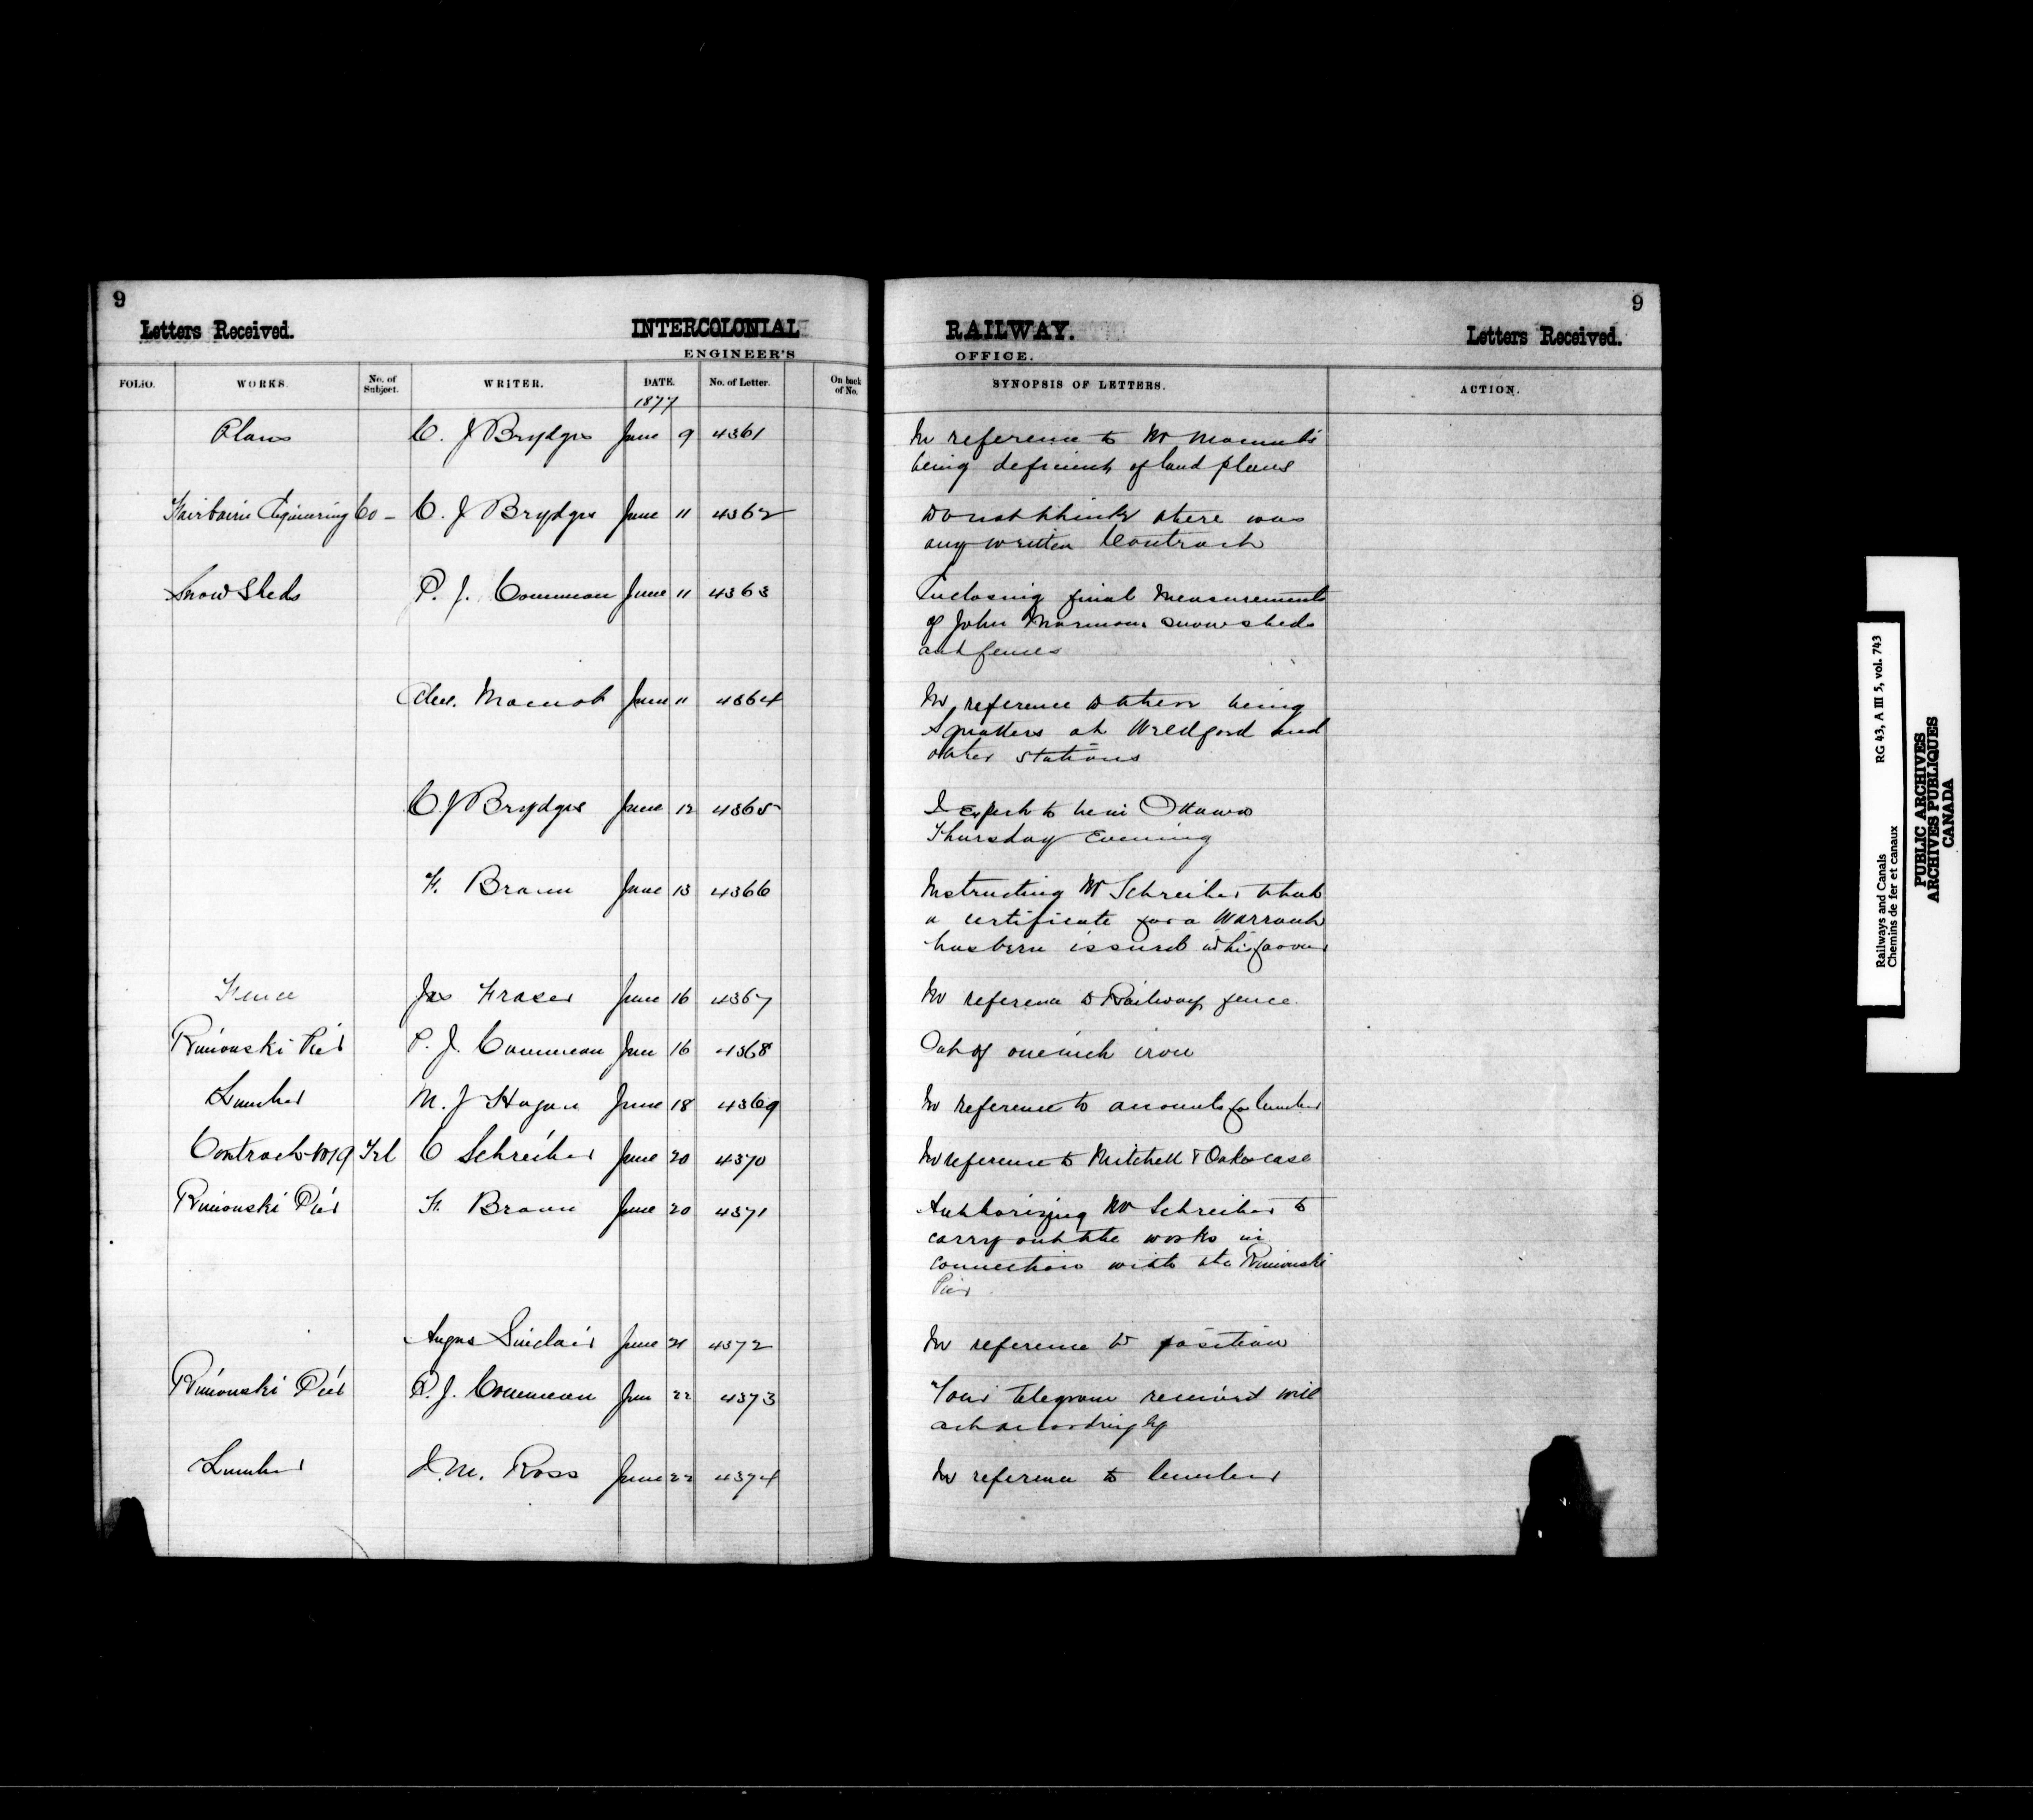 9
Letters Received.
INTERCOLONIAL
ENGINEER'S
FOLIO. WORKS No. of Subject. WRITER. DATE. No. of Letter. On back of No.
1877
Plans C. J Brydges June 9 4361
Fairbairn Engineering Co - C. J Brydges June 11 4362
Snow Sheds P. J. Commeau June 11 4363
Alex. Macnab June 11 4364
C J Brydges June 12 4365
F. Braun June 13 4366
Fence Jas Fraser June 16 4367
Rimouski Pier P. J. Commeau June 16 4368
Lumber M. J Hogan June 18 4369
Contract No 19 Tel C Schreiber June 20 4370
Rimouski Pier F. Braun June 20 4371
Angus Sinclair June 21 4372
Rimouski Pier P. J. Commeau June 22 4373
Lumber J. M. Ross June 22 4374
9
RAILWAY.
OFFICE.
Letters Received.
SYNOPSIS OF LETTERS. ACTION.
In reference to Mr Macnab's
being deficient of land plans
Do not think there was
any written Contract
Inclosing final Measurements
of John snow sheds
and fences
In reference to there being
Squatters at Weldford and
other stations
I Expect to be in Ottawa
Thursday Evening
Instructing Mr Schreiber that
a certificate for a Warrant
has been issued in his favour
In reference to Railway fence.
Out of one inch iron
In reference to accounts for lumber
In reference to Mitchell & Oakes case
Authorizing Mr Schreiber to
carry out the works in
connection with the Rimouski
Pier
In reference to position
Your telegram received will
act accordingly
In reference to lumber
Railways and Canals RG 43, A III 5, vol. 743
Chemins de fer et canaux
PUBLIC ARCHIVES
ARCHIVES PUBLIQUES
CANADA